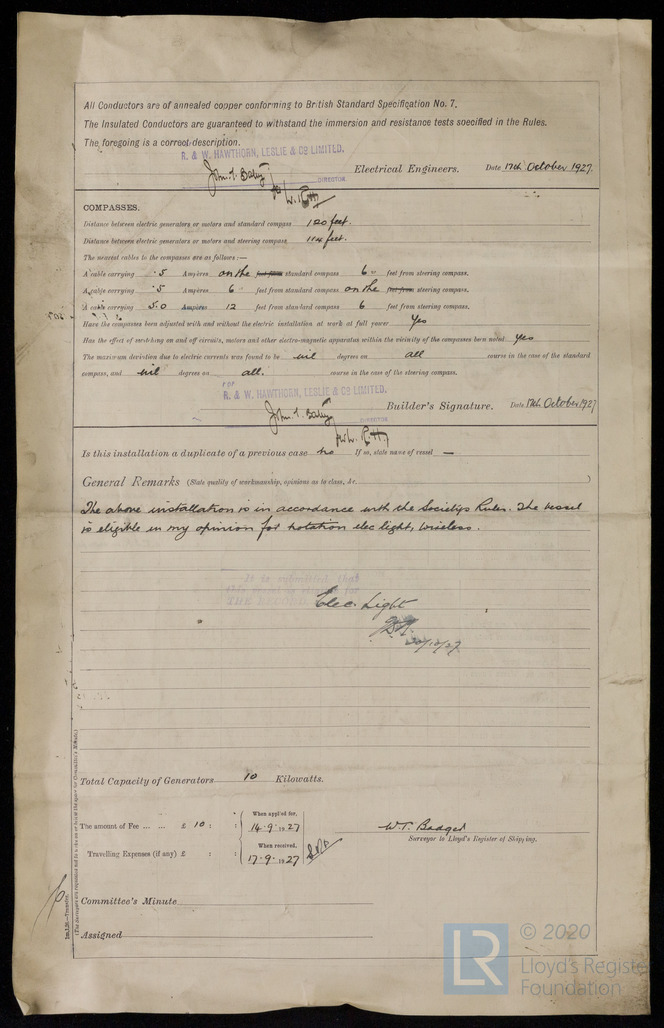 All Conductors are of annealed copper conforming to British Standard Specification No. 7.
The Insulated Conductors are guaranteed to withstand the immersion and resistance tests specified in the Rules.
The foregoing is a correct description.
R. & W. HAWTHORN, LESLIE & CO LIMITED.
DIRECTOR
Electrical Engineers. Date 17th October 1927.
COMPASSES.
Distance between electric generators or motors and standard compass 120 feet.
Distance between electric generators or motors and steering compass 114 feet.
The nearest cables to the compasses are as follows:—
A cable carrying .5 Ampères on the standard compass 6 feet from steering compass.
A cable carrying .5 Ampères 6 feet from standard compass on the steering compass.
A cable carrying 5.0 Ampères 12 feet from standard compass 6 feet from steering compass.
Have the compasses been adjusted with and without the electric installation at work at full power Yes
Has the effect of switching on and off circuits, motors and other electro-magnetic apparatus within the vicinity of the compasses been noted Yes
The maximum deviation due to electric currents was found to be nil degrees on all course in the case of the standard
compass, and nil degrees on all. course in the case of the steering compass.
FOR
R. & W. HAWTHORN, LESLIE & CO LIMITED.
DIRECTOR
Builder's Signature. Date 17th October 1927
Is this installation a duplicate of a previous case no If so, state name of vessel —
General Remarks (State quality of workmanship, opinions as to class, &c. )
The above installation is in accordance with the Societys Rules. The vessel
is eligible in my opinion for notation elec light, wireless.
It is submitted that
THE RECORD
Elec. Light
Total Capacity of Generators 10 Kilowatts.
The amount of Fee ... ... £ 10 : :
When applied for,
14.9.1927
When received,
17.9.1927
Travelling Expenses (if any) £ : :
W.T. Badger
Surveyor to Lloyd's Register of Shipping.
Committee's Minute
Assigned
LR
© 2020
Lloyd's Register
Foundation